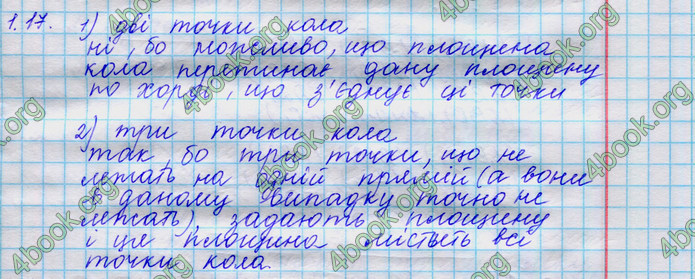 1.17. 1) дві точки кола
ні, бо можливо, що площина
кола перетинає дану площину
по хорді, що з'єднує ці точки
2) три точки кола
так, бо три точки, що не
лежать на одній прямій (а вони
в даному випадку точно не
лежать), задають площину
і ця площина містить всі
точки кола.
4book.org